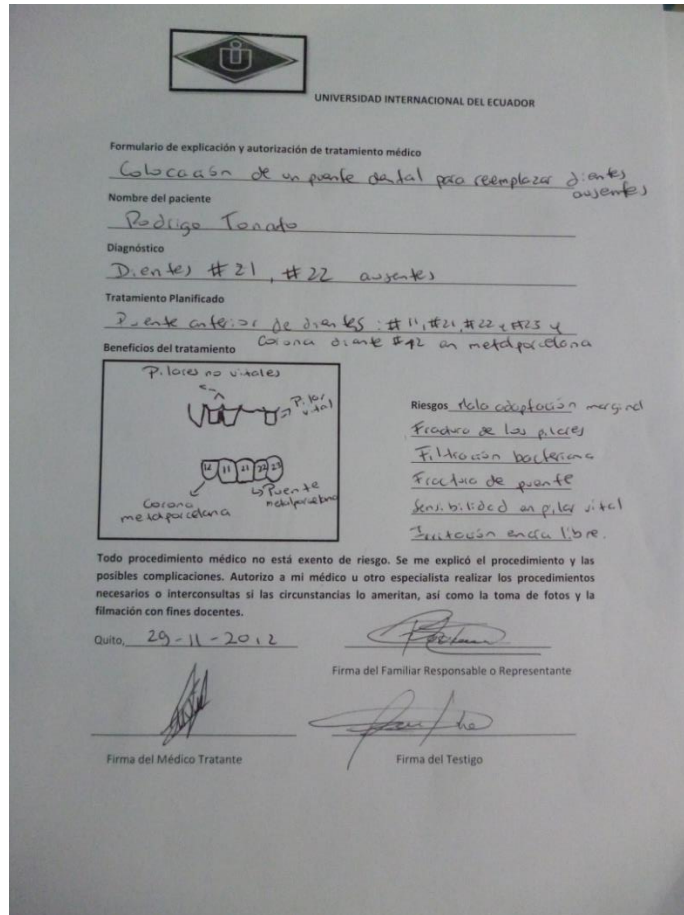 UNIVERSIDAD INTERNACIONAL DEL ECUADOR
Formulario de explicación y autorización de tratamiento médico
Colocación de un puente dental para reemplazar dientes
ausentes
Nombre del paciente
Rodrigo
Diagnóstico
Dientes #21, #22 ausentes
Tratamiento Planificado
Puente anterior de dientes: #11, #21, #22 y #23 y
Corona diente #12 en metalporcelana
Beneficios del tratamiento
Pilares no vitales
Pilar
vital
12 11 21 22 23
Corona
metalporcelana
Puente
metalporcelana
Riesgos Mala adaptación marginal
Fractura de los pilares
Filtración bacteriana
Fractura de puente
Sensibilidad en pilar vital
Irritación encía libre.
Todo procedimiento médico no está exento de riesgo. Se me explicó el procedimiento y las
posibles complicaciones. Autorizo a mi médico u otro especialista realizar los procedimientos
necesarios o interconsultas si las circunstancias lo ameritan, así como la toma de fotos y la
filmación con fines docentes.
Quito, 29-11-2012
Firma del Familiar Responsable o Representante
Firma del Médico Tratante
Firma del Testigo